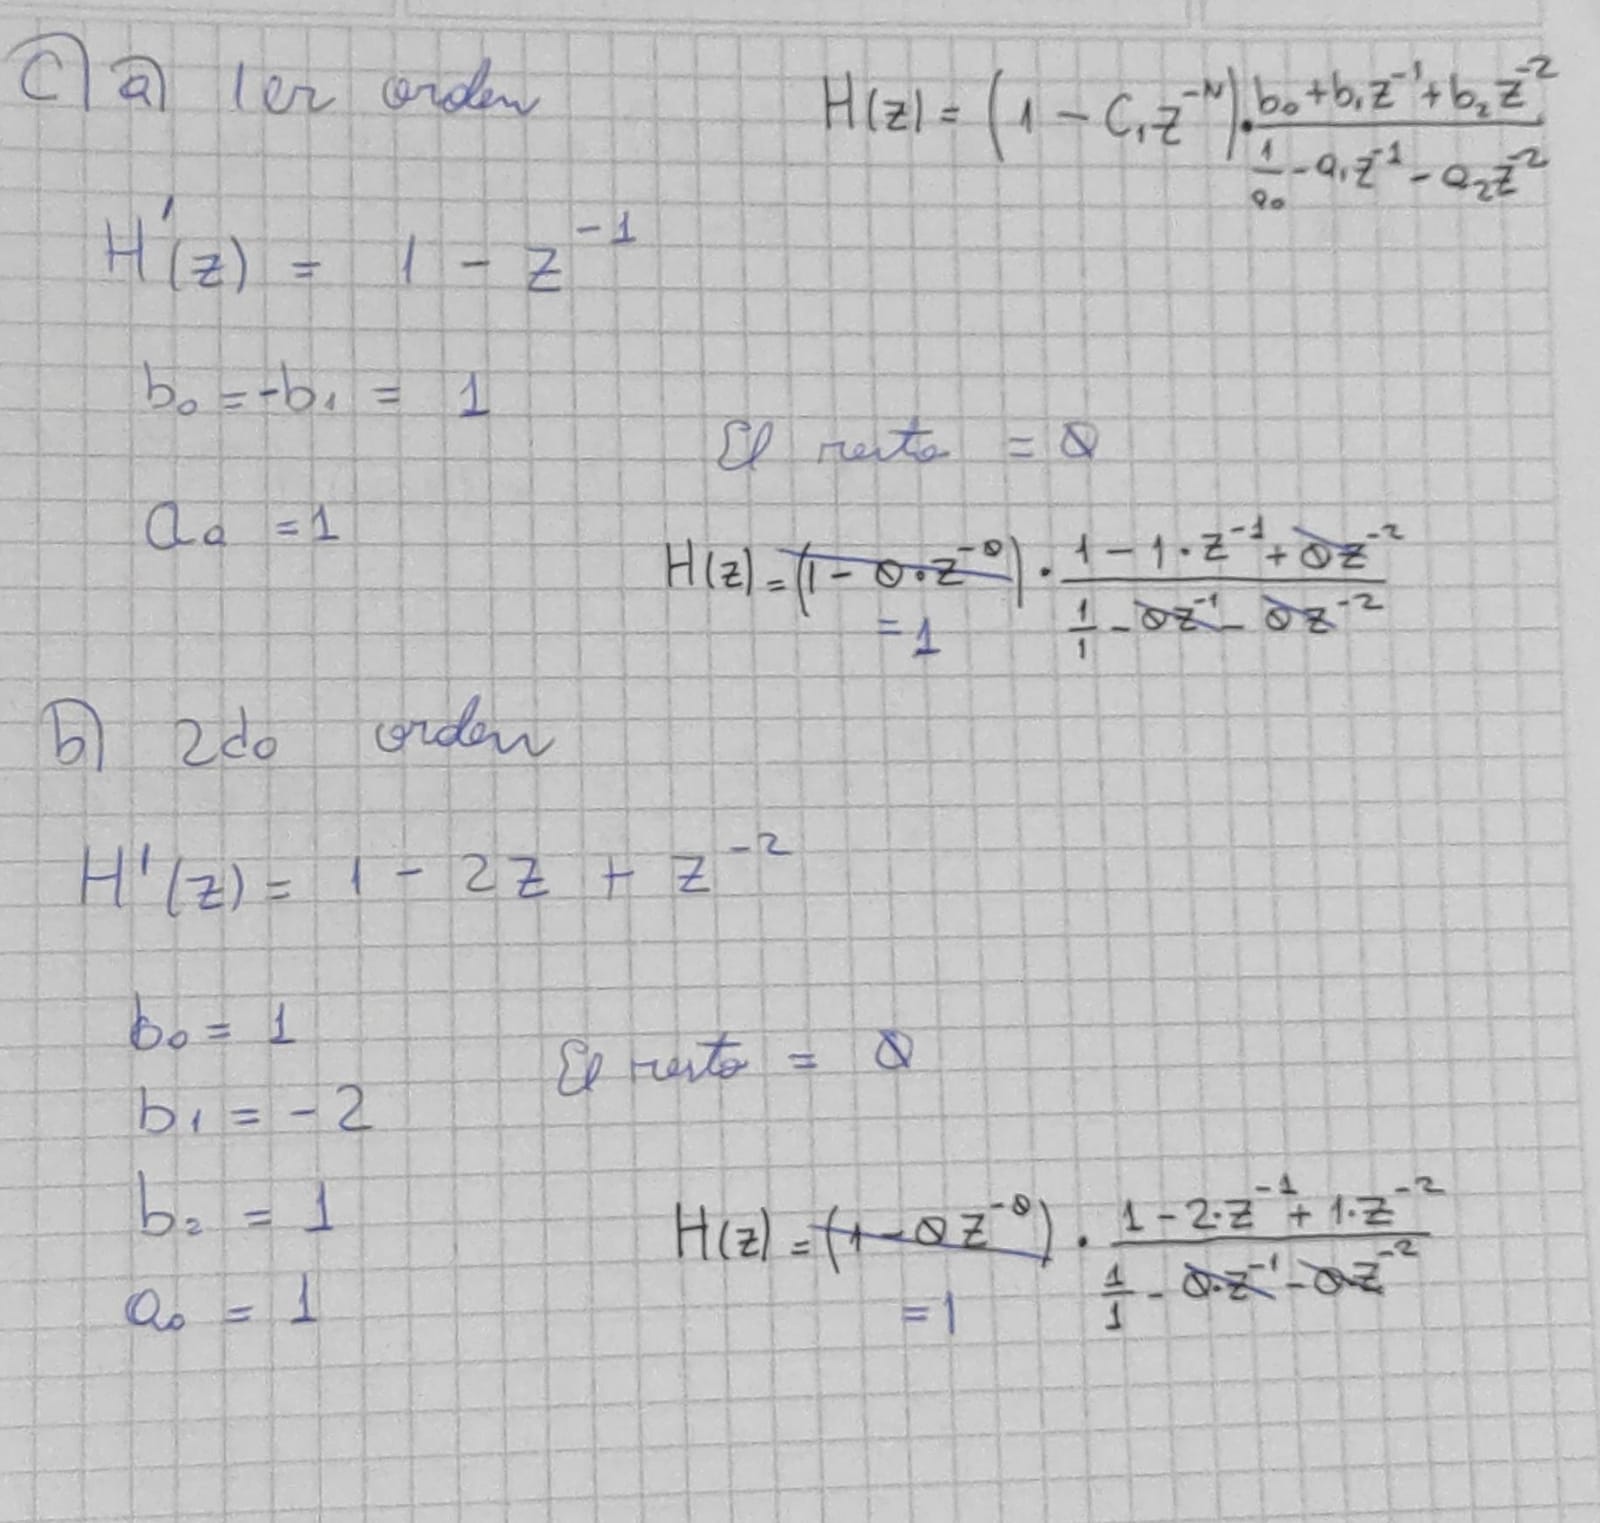 C) a) 1er orden
H(z) = (1 - C₁z⁻ᴺ) · (b₀ + b₁z⁻¹ + b₂z⁻²) / (1/a₀ - a₁z⁻¹ - a₂z⁻²)
H'(z) = 1 - z⁻¹
b₀ = -b₁ = 1
El resto = 0
a₀ = 1
H(z) = (1 - 0·z⁻⁰) · (1 - 1·z⁻¹ + 0z⁻²) / (1/1 - 0z⁻¹ - 0z⁻²)
= 1
b) 2do orden
H'(z) = 1 - 2z + z⁻²
b₀ = 1
El resto = 0
b₁ = -2
b₂ = 1
H(z) = (1 - 0z⁻⁰) · (1 - 2·z⁻¹ + 1·z⁻²) / (1/1 - 0·z⁻¹ - 0z⁻²)
= 1
a₀ = 1